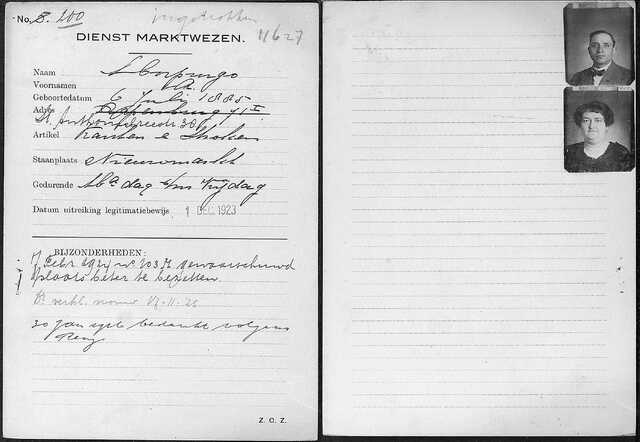 No. B. 200
ingetrokken
DIENST MARKTWEZEN.
11627
Naam
Voornamen
Geboortedatum 6 Juli 1885
Adres
St. Antoniebreestr 36
Artikel Kanten e Stroken
Staanplaats Nieuwmarkt
Gedurende Ma dag t/m Vrijdag
Datum uitreiking legitimatiebewijs 1 DEC. 1923
BIJZONDERHEDEN:
7 Febr 1924 No 103 M gewaarschuwd
plaats beter te bezetten
17-11-25
30 Jan bedankt volgens
Z. O. Z.